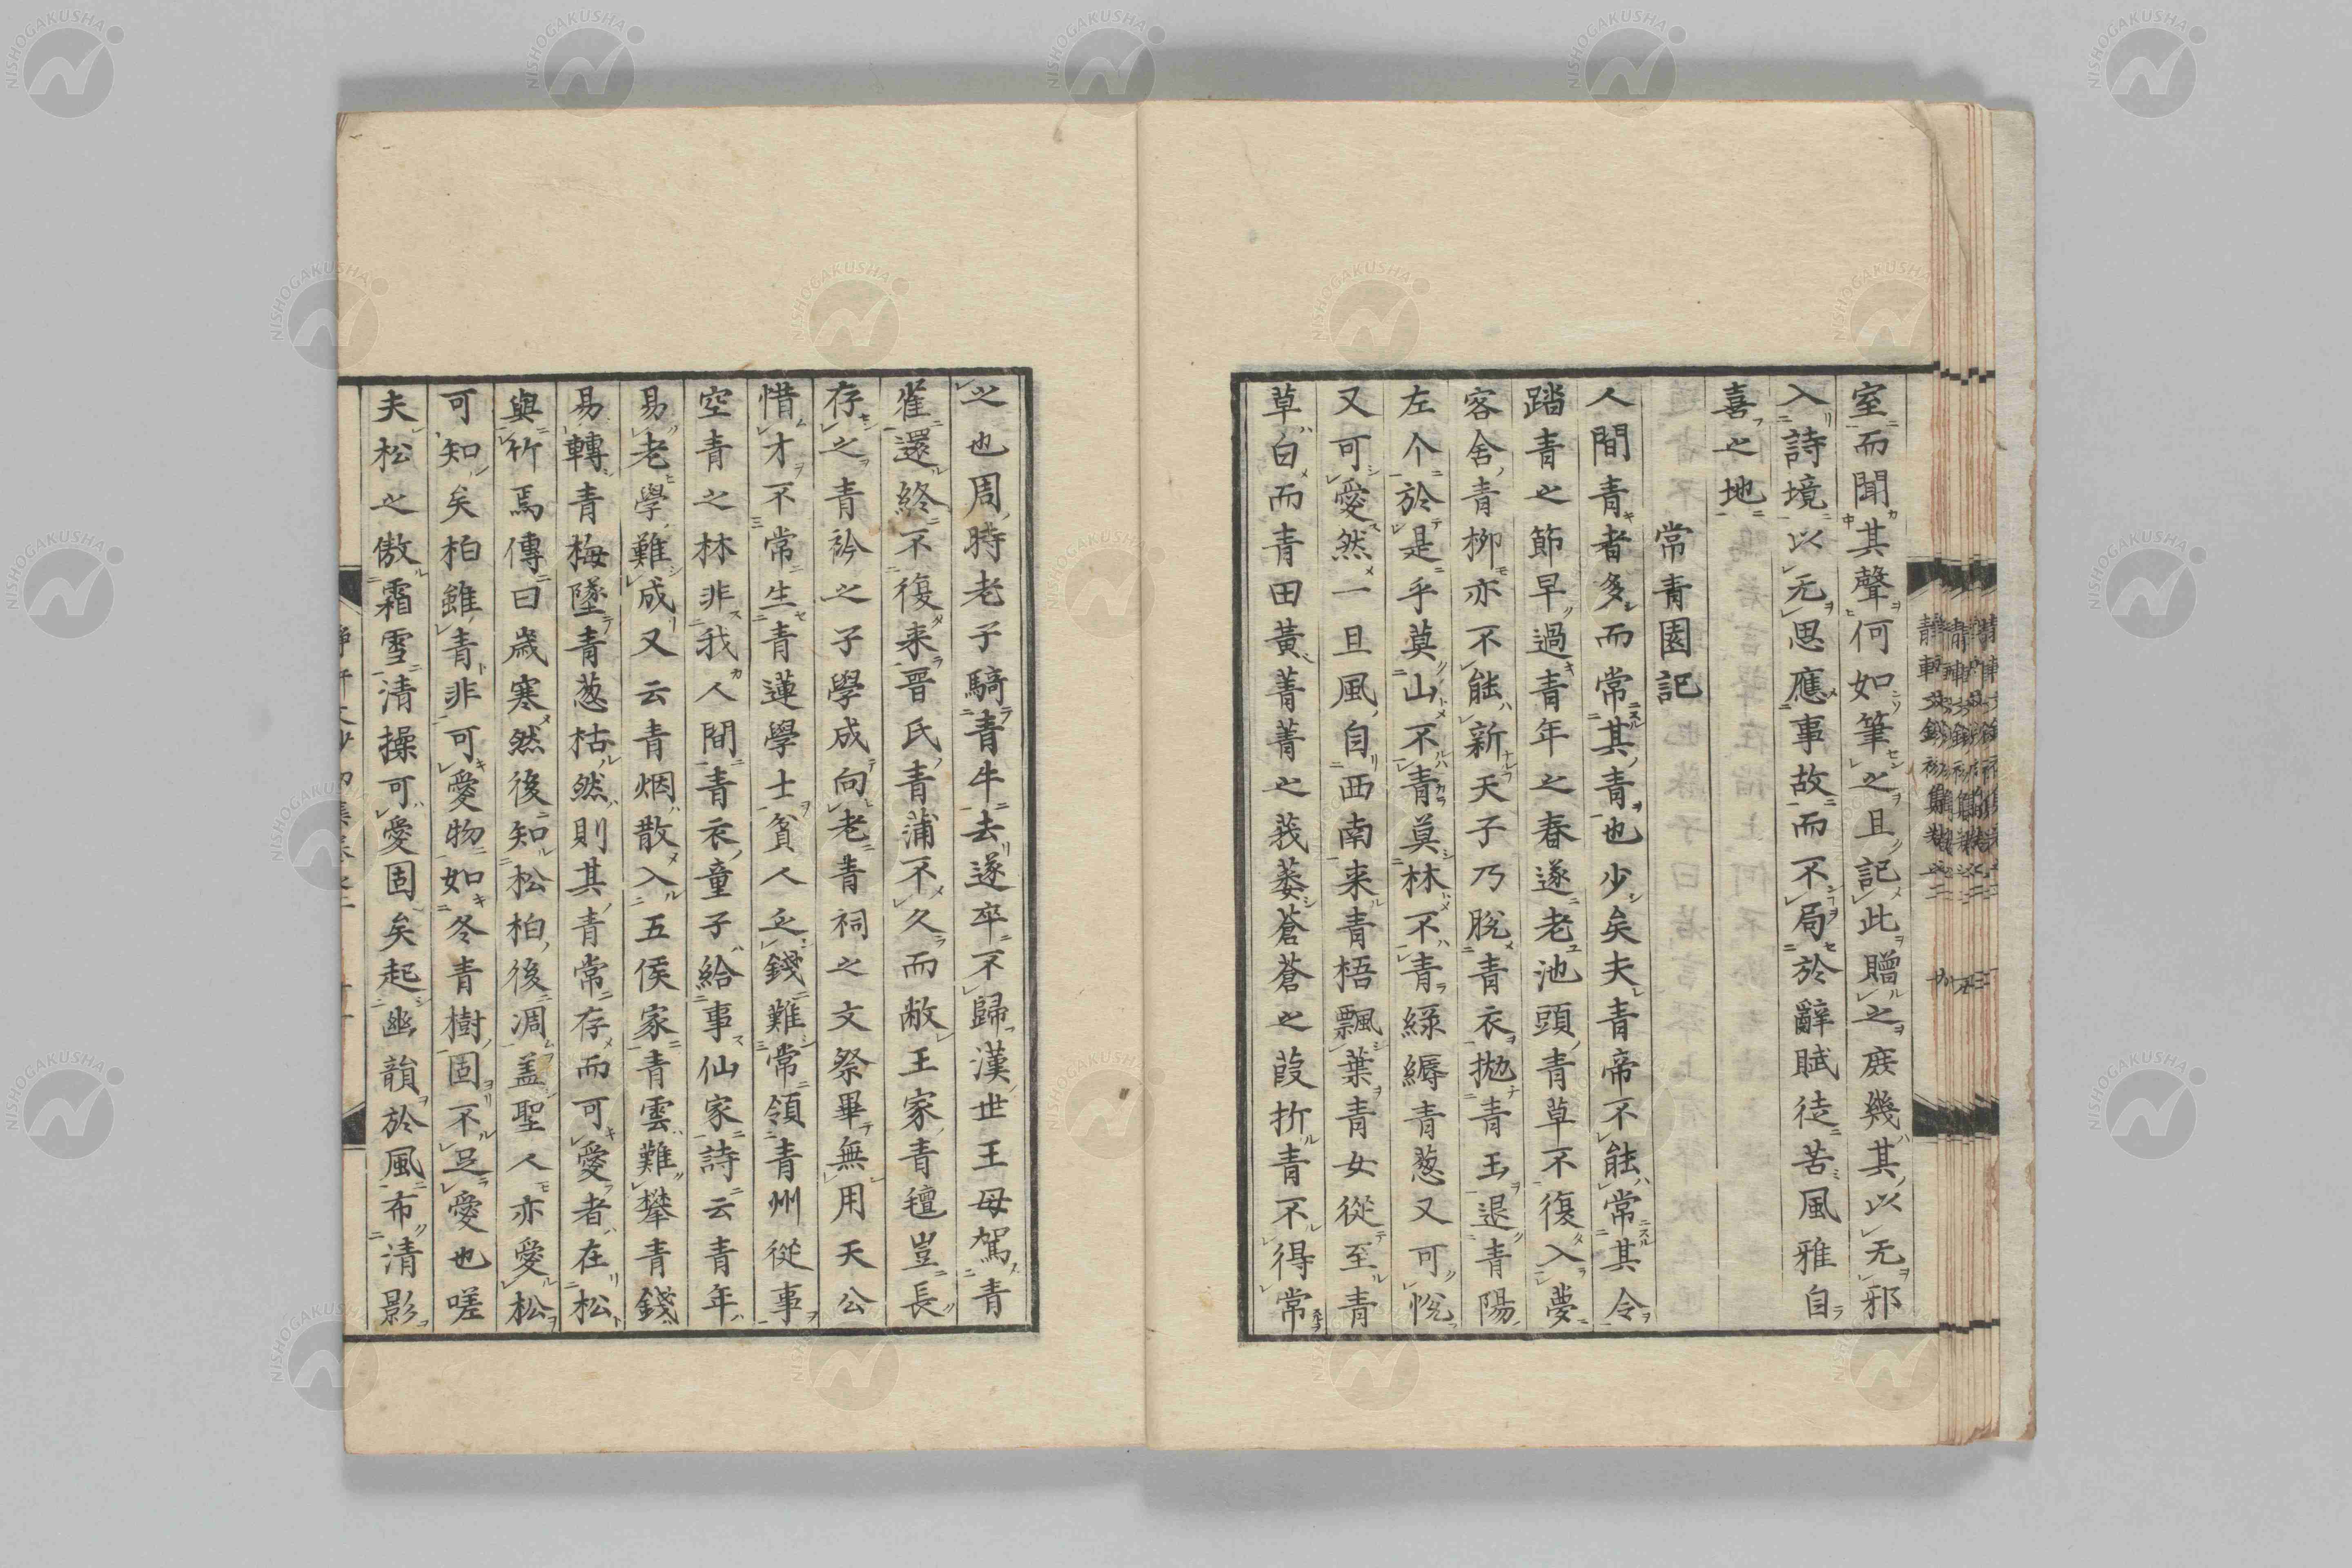 室而聞其聲何如筆之且記此贈之庶幾其以无邪
入詩境以无思應事故而不局於辭賦徒苦風雅自
喜之地
常青園記
人間青者多而常其青也少矣夫青帝不能常其令
踏青之節早過青年之春遂老池頭青草不復入夢
容舍青柳亦不能新天子乃脫青衣拋青玉退青陽
左个於是乎莫山不青莫林不青綠縟青葱又可悅
又可愛然一旦風自西南来青梧飄葉青女從至青
草白而青田黃菁菁之莪萎蒼蒼之葭折青不得常
之也周時老子騎青牛去遂卒不歸漢世王母駕青
雀還終不復来晉氏青蒲不久而敝王家青氊豈長
存之青衿之子學成向老青祠之文祭畢無用天公
惜才不常生青蓮學士貧人乏錢難常領青州從事
空青之林非我人間青衣童子給事仙家詩云青年
易老學難成又云青烟散入五侯家青雲難攀青錢
易轉青梅墜青葱枯然則其青常存而可愛者在松
與竹焉傳曰歳寒然後知松柏後凋盖聖人亦愛松
可知矣柏雖青非可愛物如冬青樹固不足愛也嗟
夫松之傲霜雪清操可愛固矣起幽韻於風布清影